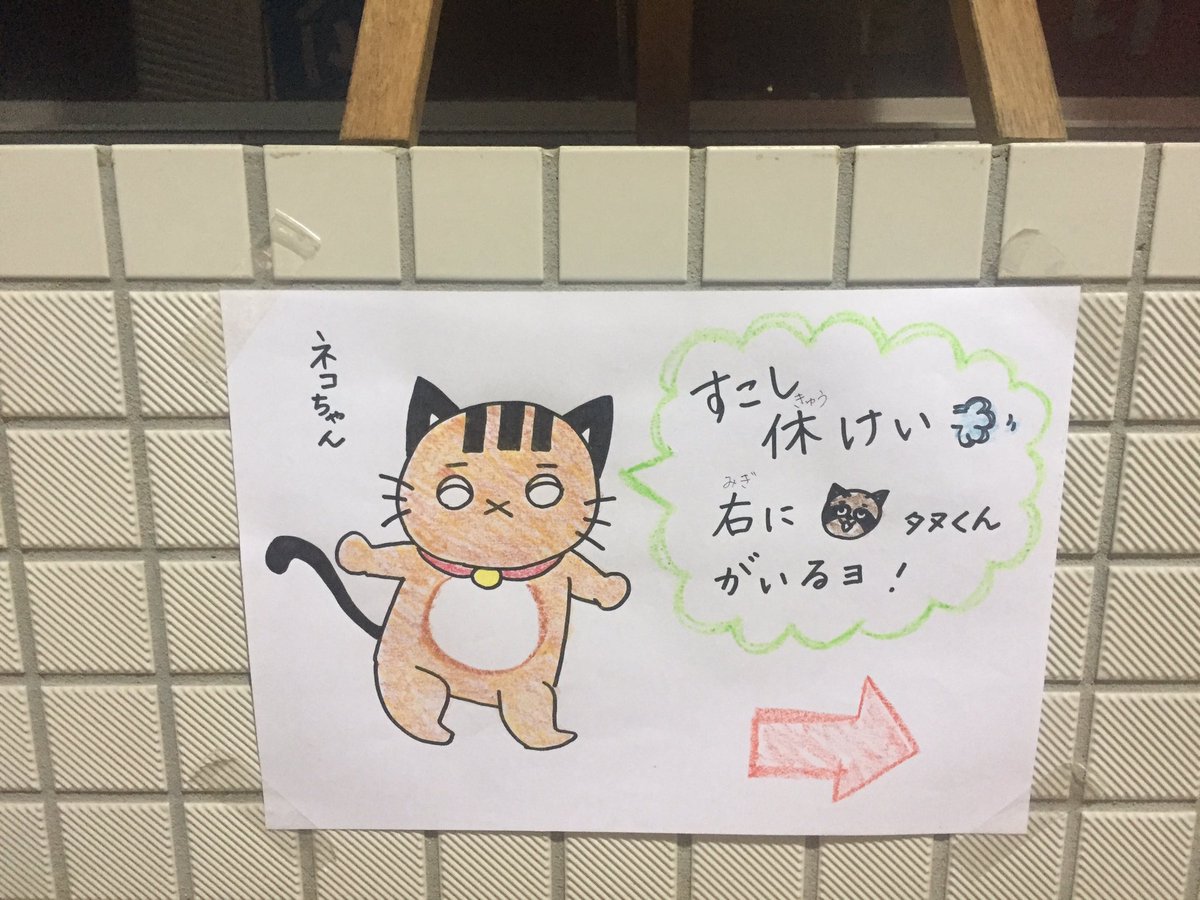 ネコちゃん
すこし
休けい
きゅう
右に タヌくん
みぎ
がいるヨ!